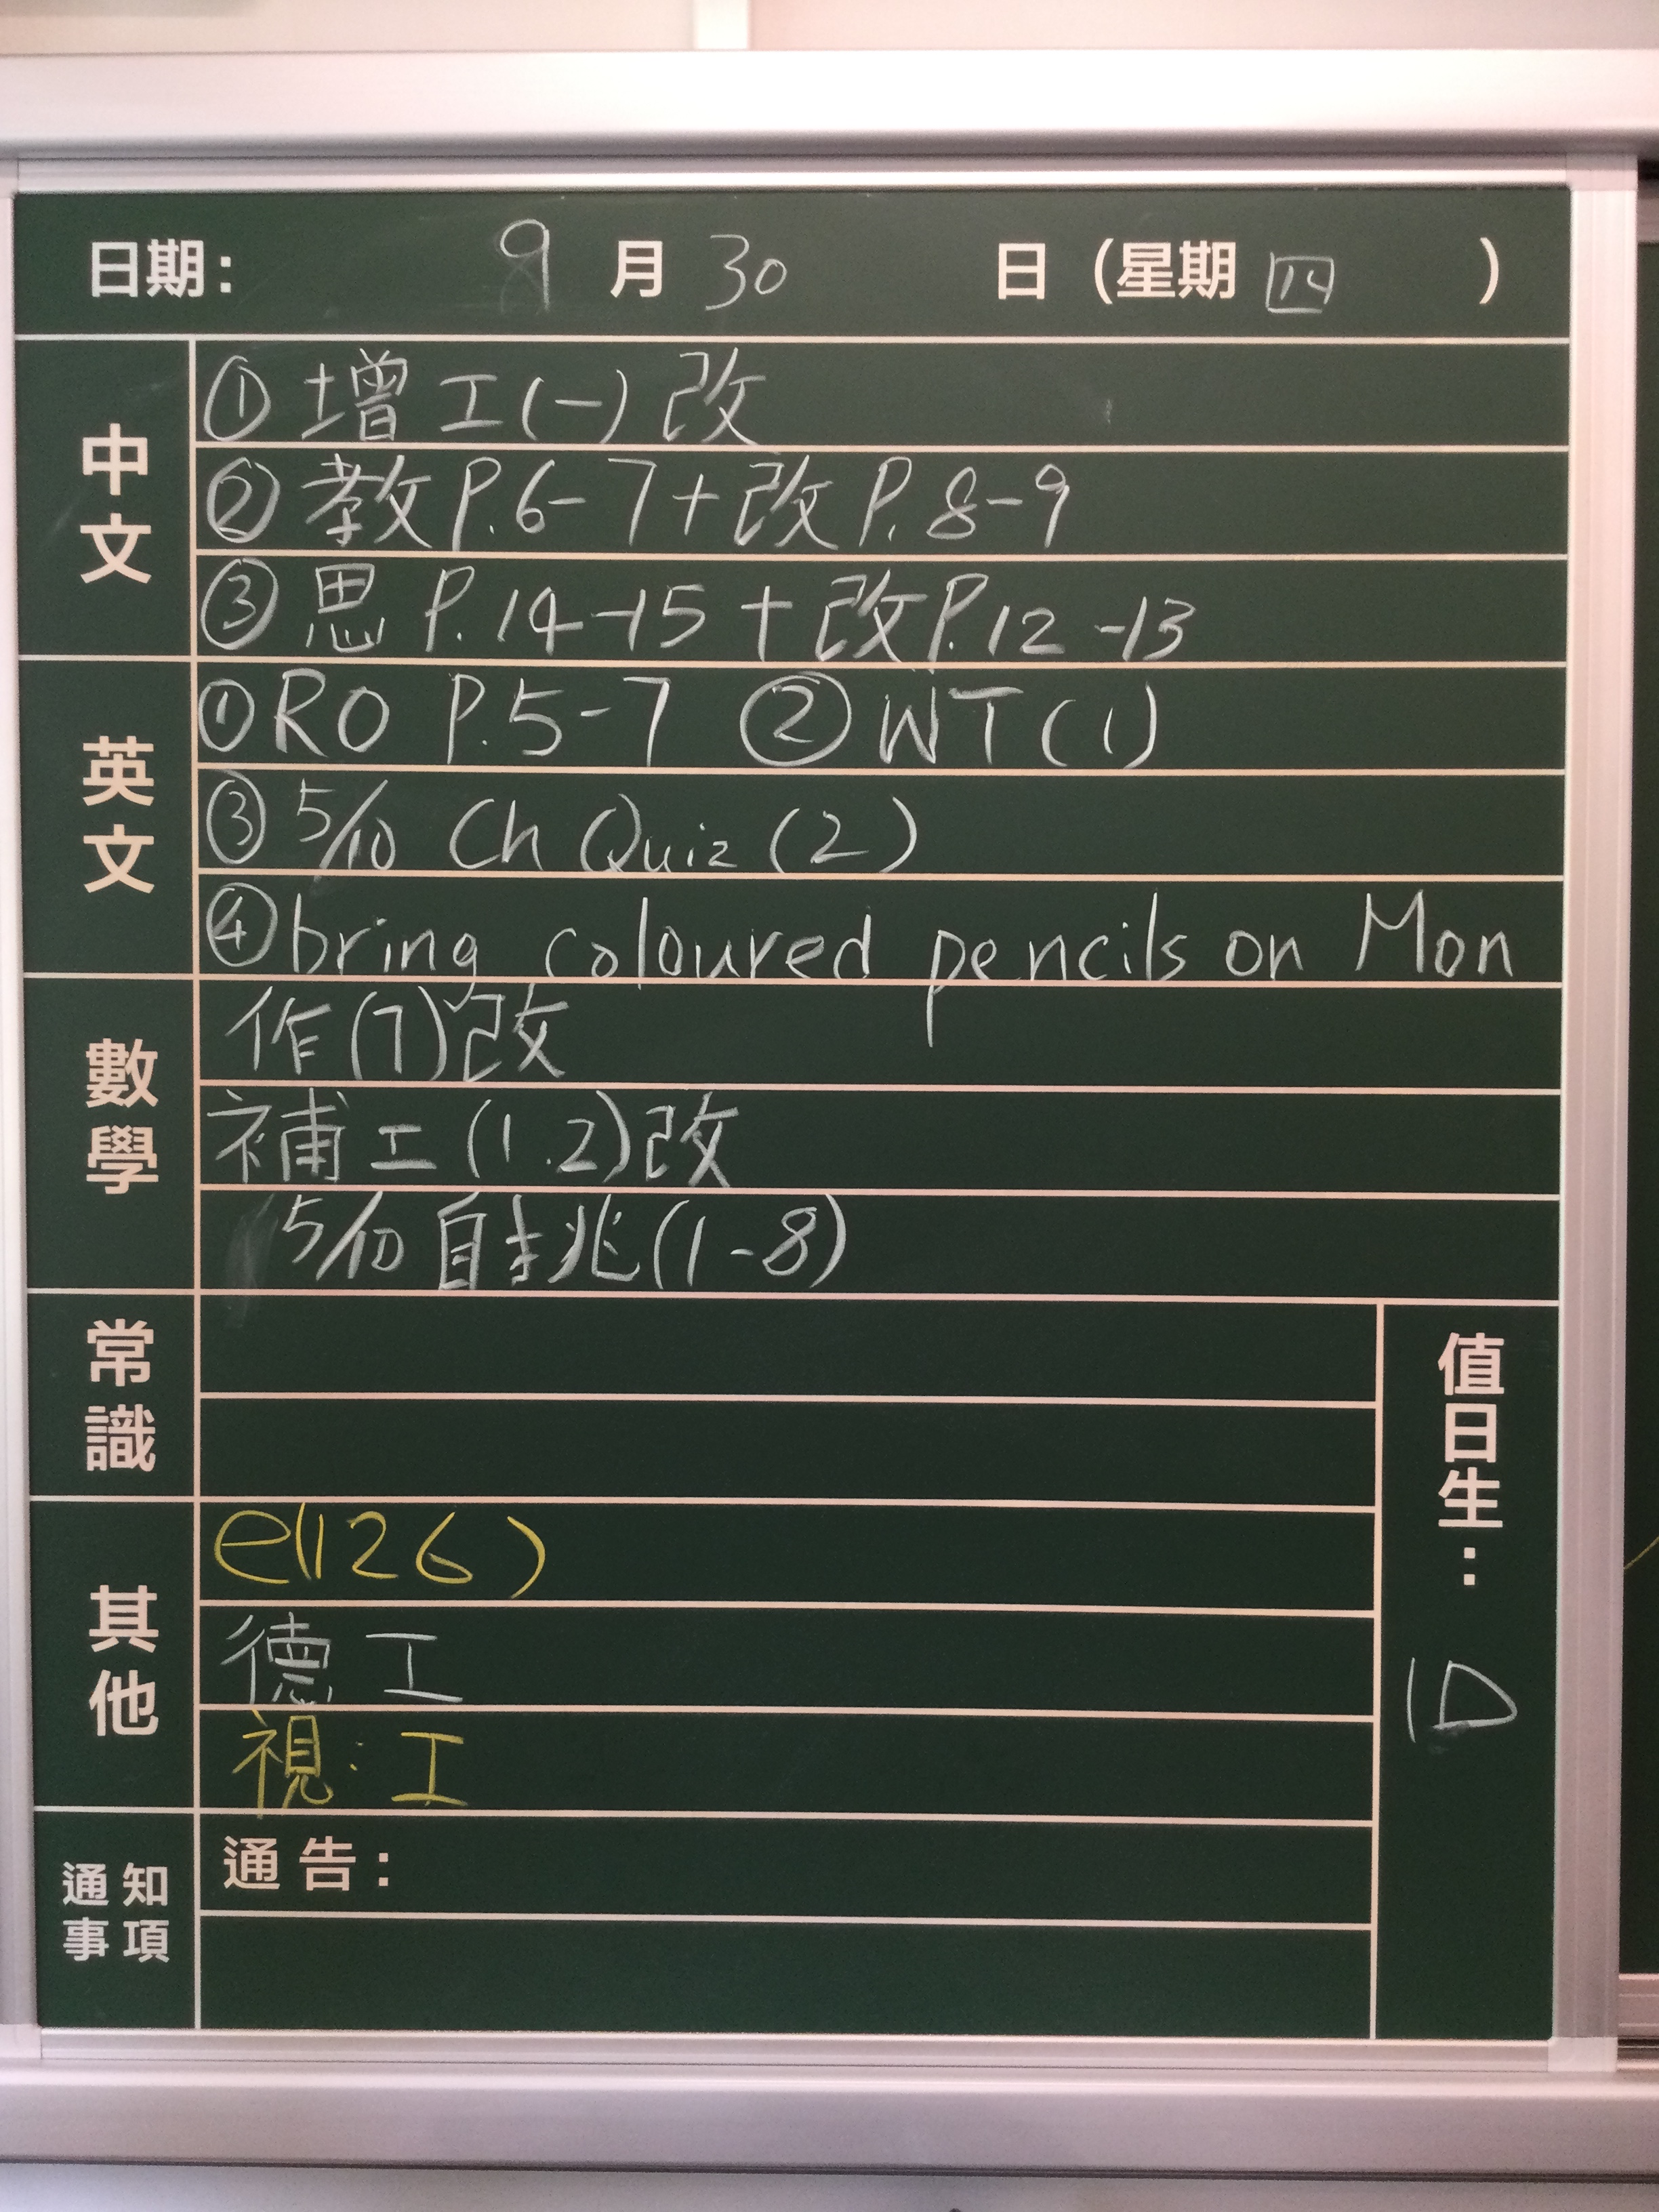 日期： 9 月 30 日（星期 四 ）
中文
① 增工(一)改
② 教P.6-7+改P.8-9
③ 思 P.14-15 + 改P.12-13
英文
① RO P.5-7 ② WT(1)
③ 5/10 Ch Quiz (2)
④ bring coloured pencils on Mon
數學
作(7)改
補工(1.2)改
5/10 自挑(1-8)
常識
其他
e(126)
德工
視:工
值日生：
1D
通知事項
通告：